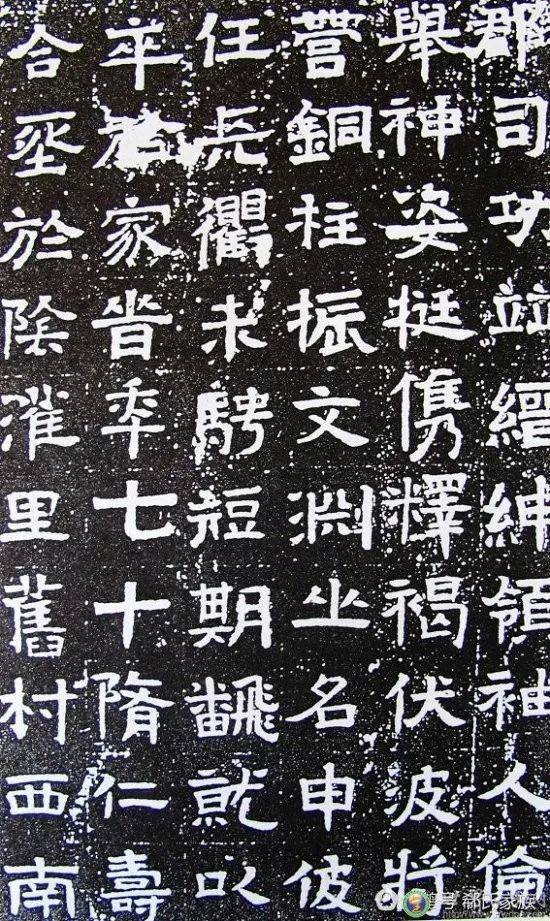 郡司功竝縉紳領袖人倫
舉神姿挺儁釋褐伏波將
營銅柱振文渕㞢名申彼
任長衢未騁短期飜就以
卒於家旹年七十隋仁壽
合於陰灌里舊村西南
号 氏家族